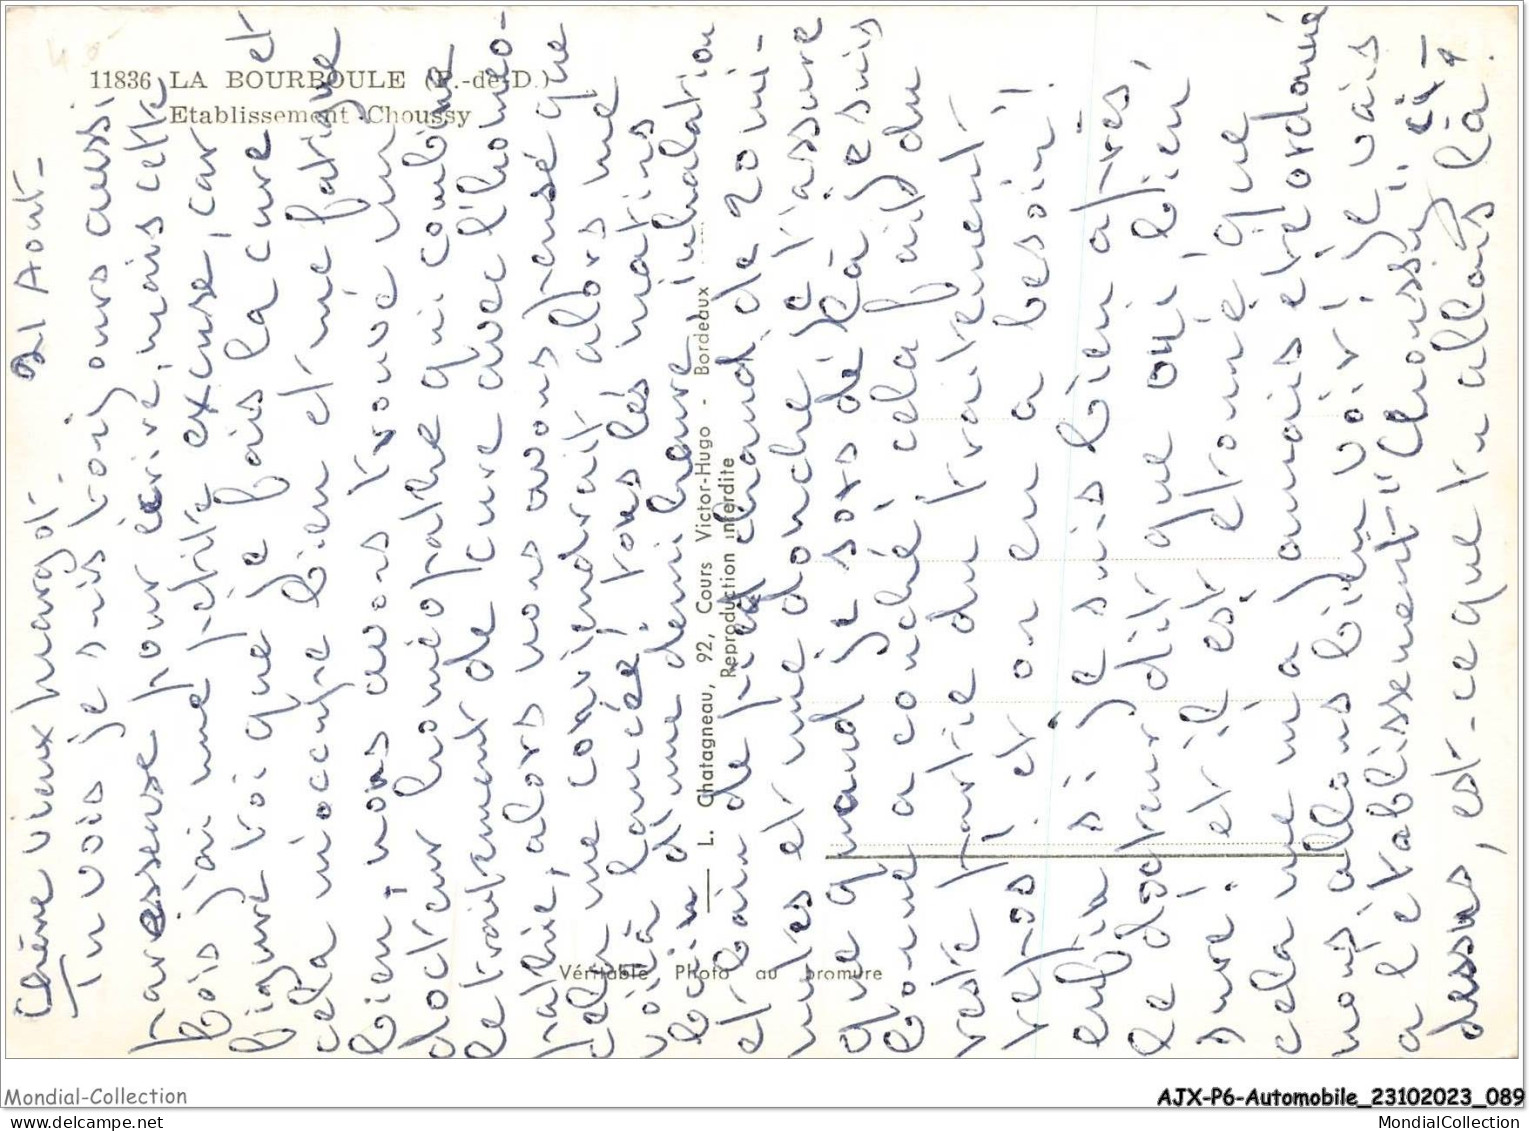 11836 LA BOURBOULE (P.-de-D.)
Etablissement Choussy
21 Aout-
Chère vieux margot.
Tu vois je suis toujours aussi
paresseuse pour écrire, mais cette
fois j'ai une petite excuse, car
figure toi que je fais la cure et
cela m'occupe bien et me fatigue
bien, nous avons trouvé un
docteur homéopathe qui combine
le traitement de cure avec l'homéo-
pathie, alors nous avons pensé que
cela me conviendrait, alors me
voilà lancée! tous les matins
bain d'une demi heure inhalation
et bain de pied chaud de 20 mi-
nutes et une douche je t'assure
que quand je sors de là je suis
bonne a couché, cela fait du
reste partie du traitement
repos! et on en a besoin!
enfin si je suis bien après,
le docteur dit que oui, bien
sure! et il est étonné que
cela ne m'a jamais été ordonné
nous allons bien voir! je vais
a l'établissement "Choussy" ci-
dessus, est-ce que tu allais là?
L. Chatagneau, 92, Cours Victor-Hugo - Bordeaux
Reproduction interdite
Véritable Photo au bromure
Mondial-Collection
AJX-P6-Automobile_23102023_089
mondial-collection.com
MondialCollection